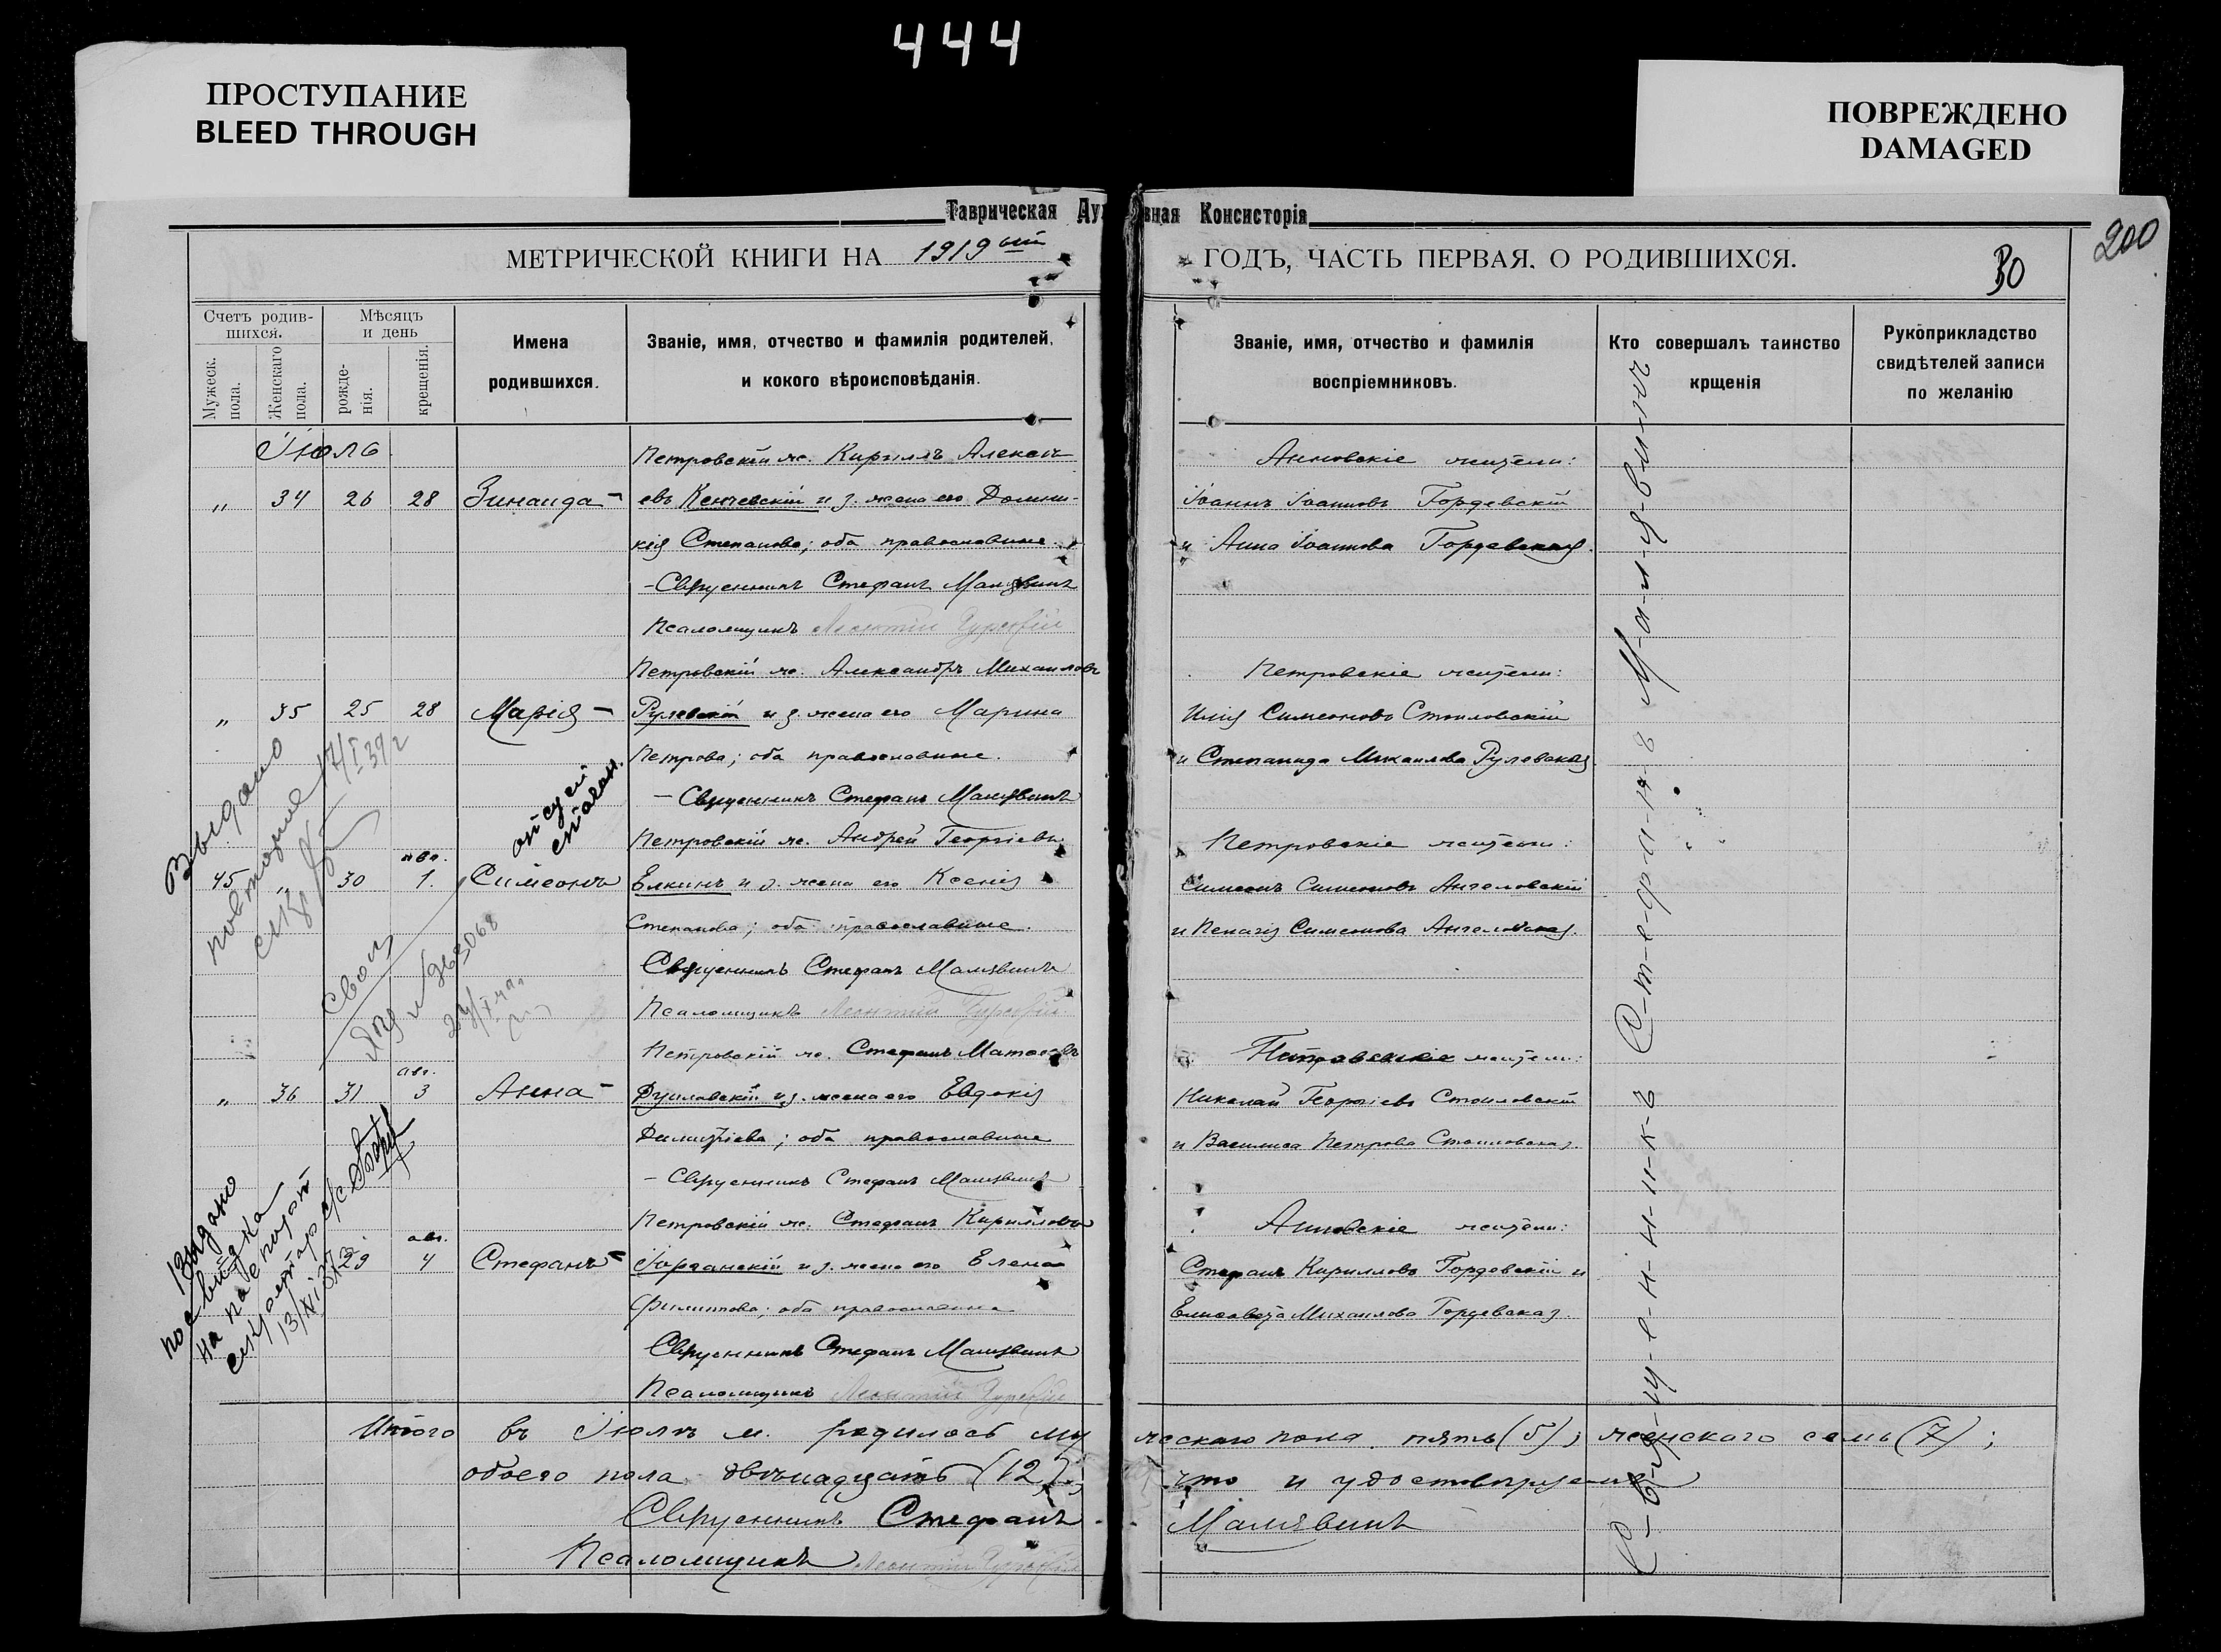 444
ПРОСТУПАНИЕ
BLEED THROUGH
ПОВРЕЖДЕНО
DAMAGED
Таврическая Духовная Консисторія
200
МЕТРИЧЕСКОЙ КНИГИ НА 1919ый ГОДЪ, ЧАСТЬ ПЕРВАЯ, О РОДИВШИХСЯ.
30
Счетъ родив-
шихся.
Мужеск. пола.
Женскаго пола.
Мѣсяцъ
и день
рожде-
нія.
крещенія.
Имена
родившихся.
Званіе, имя, отчество и фамилія родителей,
и кокого вѣроисповѣданія.
Званіе, имя, отчество и фамилія
воспріемниковъ.
Кто совершалъ таинство
крщенія
Рукоприкладство
свидѣтелей записи
по желанію
Іюль
Петровскій ж. Кириллъ Алексѣ
„ 34 26 28 Зинаида – евъ Кенчевскій и з. жена его Домни-
кія Степанова; оба православные.
– Священникъ Стефанъ Малявинъ
Псаломщикъ Леонтій
Анновскіе жители:
Іоаннъ Іоанновъ Гордевскій
и Анна Іоаннова Гордевская.
Петровскій ж. Александръ Михаиловъ
„ 35 25 28 Марія – Рулевскій и з. жена его Марина
Петрова; оба православные.
– Священникъ Стефанъ Малявинъ
Петровскіе жители:
Илія Симеоновъ Стоиловскій
и Степанида Михаилова Рулевская.
Выдано
повторное 17/I 39 г
Петровскій ж. Андрей Георгіевъ
авг.
45 „ 30 1. Симеонъ Елкинъ и з. жена его Ксенія
Степанова; оба православные.
Священникъ Стефанъ Малявинъ
Псаломщикъ Леонтій
Петровскіе жители:
Симеонъ Симеоновъ Ангеловскій
и Пелагія Симеонова Ангеловская.
Петровскій ж. Стефанъ Матвеевъ
авг.
„ 36 31 3 Анна – Руиловскій и з. жена его Евдокія
Димитріева; оба православные
– Священникъ Стефанъ Малявинъ
Петровскіе жители:
Николай Георгіевъ Стоиловскій
и Василиса Петрова Стоиловская.
Видано
посвидка
на паспорт
Петровскій ж. Стефанъ Кирилловъ
авг.
29 4 Стефанъ – Іорданскій и з. жена его Елена
Филиппова; оба православные
Священникъ Стефанъ Малявинъ
Псаломщикъ Леонтій
Анновскіе жители:
Стефанъ Кирилловъ Гордевскій и
Елисавета Михаилова Гордевская.
С-в-я-щ-е-н-н-и-к-ъ С-т-е-ф-а-н-ъ М-а-л-я-в-и-н-ъ
Итого въ Іюлѣ м. родилось мужескаго пола пять (5); женскаго семь (7);
обоего пола двѣнадцать (12); что и удостовѣряемъ
Священникъ Стефанъ Малявинъ
Псаломщикъ Леонтій